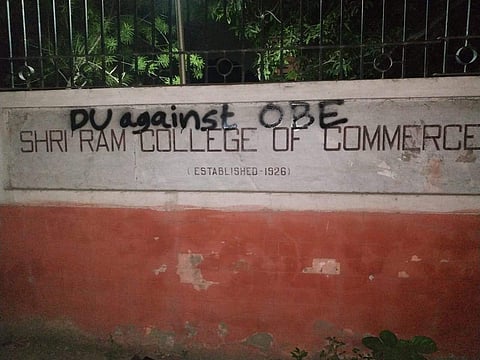 DU against OBE
SHRI RAM COLLEGE OF COMMERCE
(ESTABLISHED-1926)